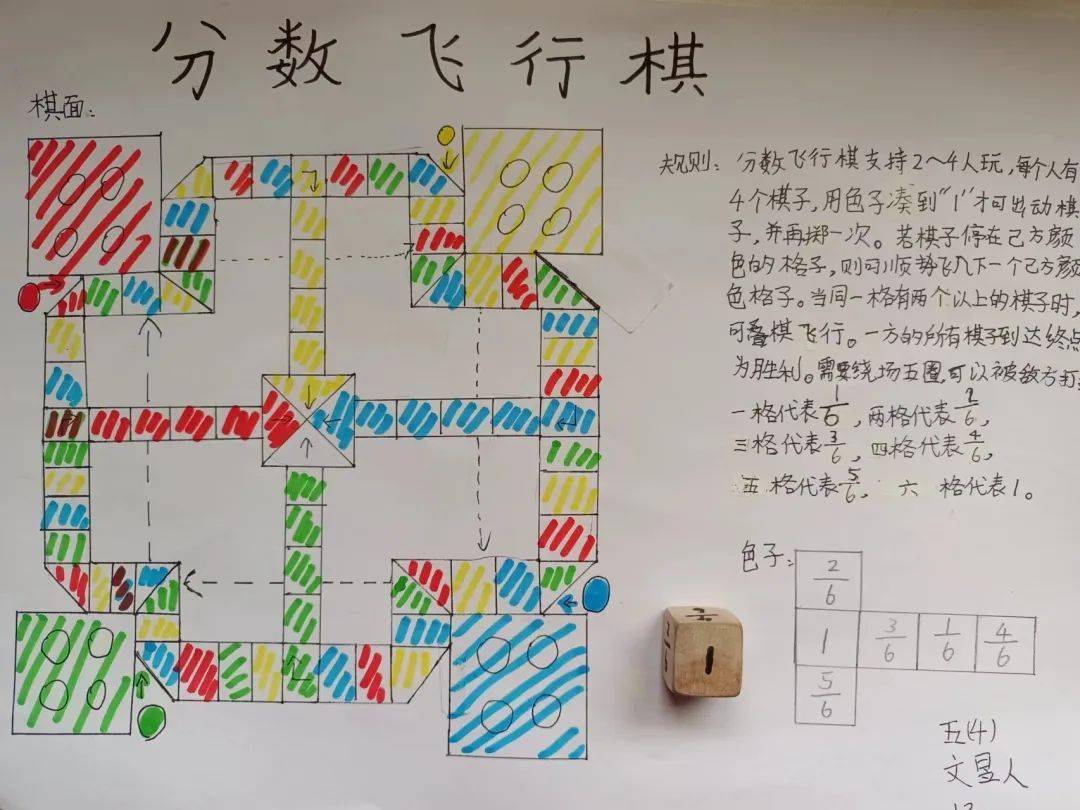 分数飞行棋
棋面:
规则: 分数飞行棋支持2~4人玩,每个人有
4个棋子,用色子凑到“1”才可出动棋
子,并再掷一次。若棋子停在己方颜
色的格子,则可顺势飞几下一个己方颜
色格子。当同一格有两个以上的棋子时,
可叠棋飞行。一方的所有棋子到达终点
为胜利。需要绕场五圈,可以被敌方打
一格代表1/6,两格代表2/6,
三格代表3/6,四格代表4/6,
五格代表5/6,六 格代表1。
色子:
2/6
1 3/6 1/6 4/6
5/6
1
五(4)
文昱人